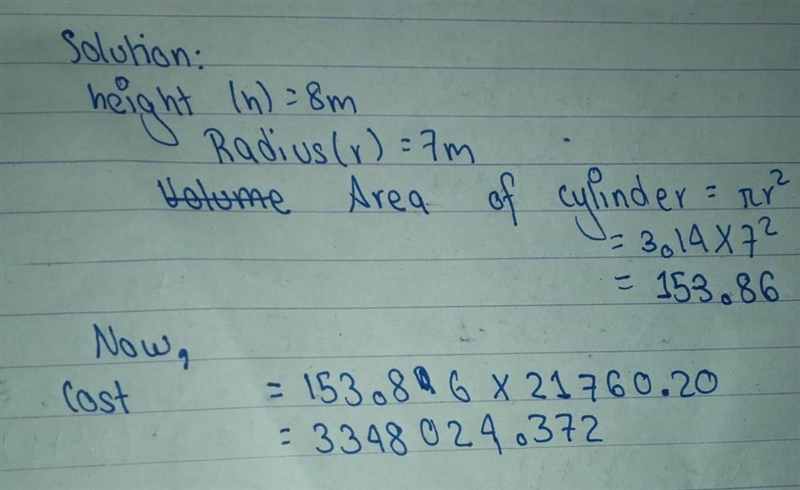 Solution:
height (h) = 8m
Radius(r) = 7m
Volume Area of cylinder = πr²
= 3.14 X 7²
= 153.86
Now,
Cost = 153.86 X 21760.20
= 3348024.372